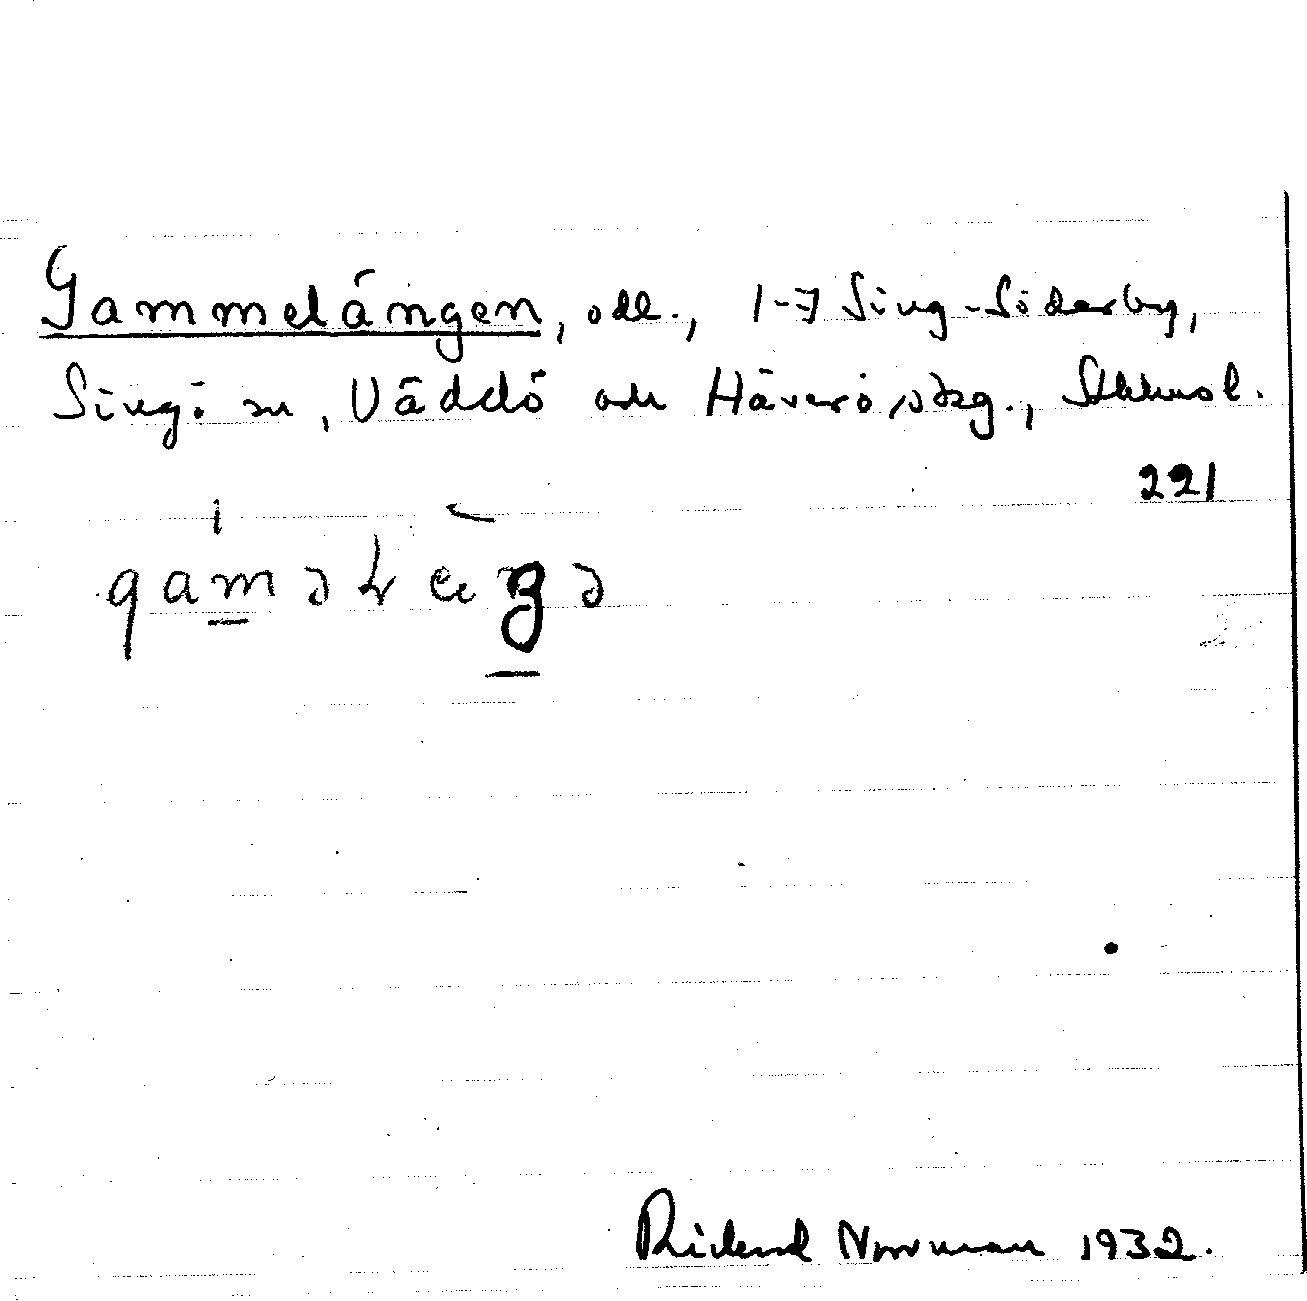 Gammelängen, odl., 1-7 Sing-Söderby,
Singö sn, Väddö och Häverö skg., Sthlms l.
221
Rickard Norrman 1932.